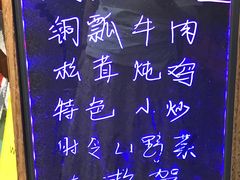 铜瓢牛肉
松茸炖鸡
特色小炒
时令山野菜